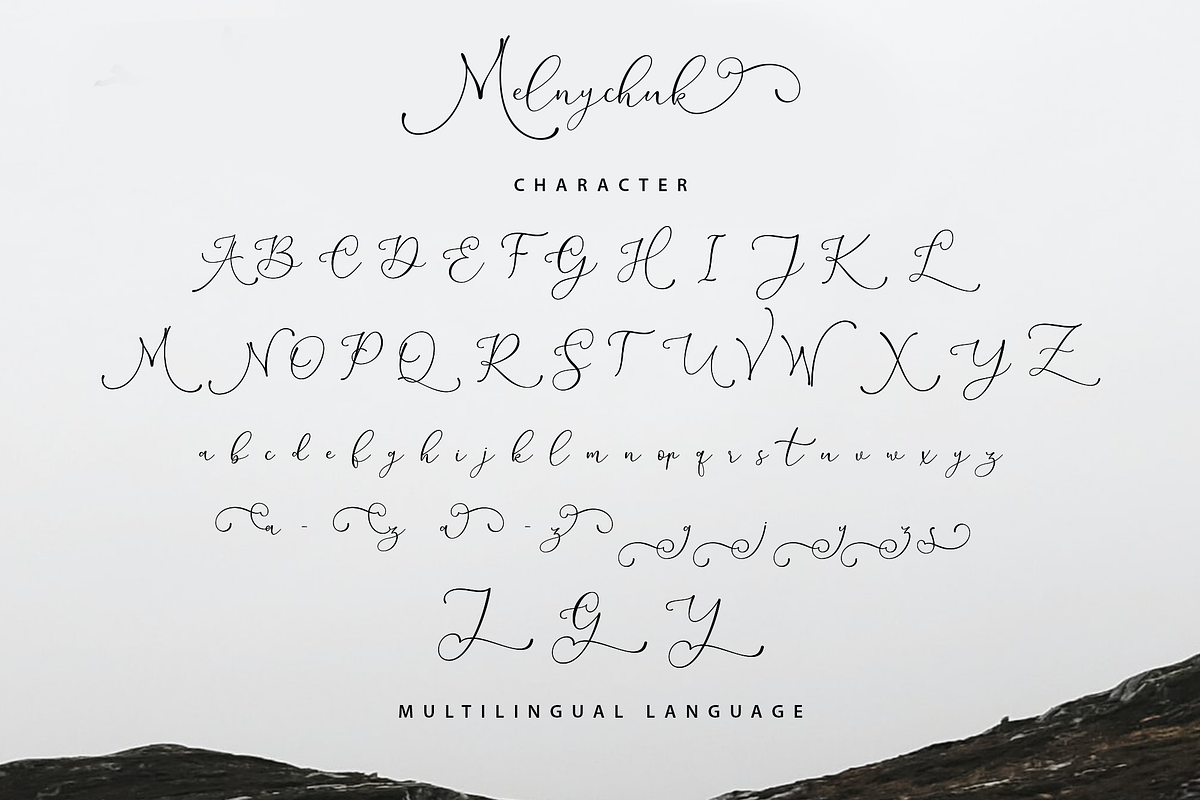 Melnychuk
CHARACTER
A B C D E F G H I J K L
M N O P Q R S T U V W X Y Z
a b c d e f g h i j k l m n o p q r s t u v w x y z
a - z a - z g j y z s
J G Y
MULTILINGUAL LANGUAGE